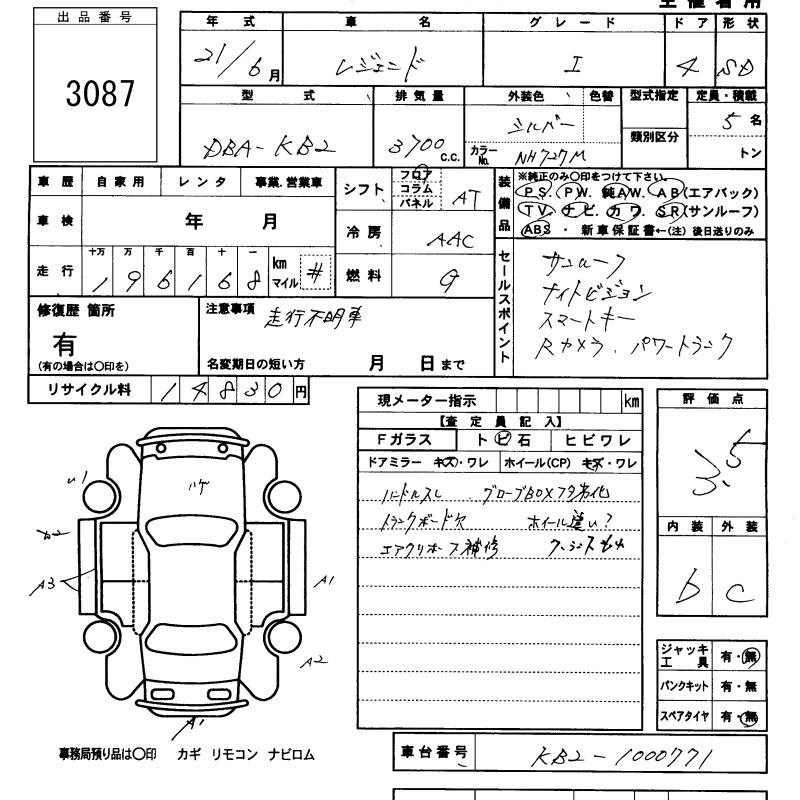 主催者用
出品番号
3087
年式 車名 グレード ドア 形状
21/6月 レジェンド I 4 SD
型式 排気量 外装色 色替 型式指定 定員・積載
DBA-KB2 3700 C.C. シルバー 類別区分 5名
カラーNo. NH727M トン
車歴 自家用 レンタ 事業.営業車
シフト フロア コラム パネル AT
装備品
※純正のみ○印をつけて下さい。
PS. PW. 純AW. AB(エアバック)
TV. ナビ. カワ. SR(サンルーフ)
ABS ・ 新車保証書←(注) 後日送りのみ
車検 年 月
冷房 AAC
走行 十万 万 千 百 十 一
196168 km マイル #
燃料 G
セールスポイント
サンルーフ
ナイトビジョン
スマートキー
Rカメラ. パワートランク
修復歴 箇所
有
(有の場合は○印を)
注意事項 走行不明車
名変期日の短い方 月 日まで
リサイクル料 14830円
現メーター指示 km
【査定員記入】
Fガラス トビ石 ヒビワレ
ドアミラー キズ・ワレ ホイール(CP) キズ・ワレ
ハンドルスレ グローブBOXフタ劣化
トランクボード欠 ホイール違い?
エアクリホース補修
評価点
3.5
内装 外装
b C
ハゲ
A3
A1
A2
A1
ジャッキ工具 有・無
パンクキット 有・無
スペアタイヤ 有・無
事務局預り品は○印 カギ リモコン ナビロム
車台番号 KB2-1000771